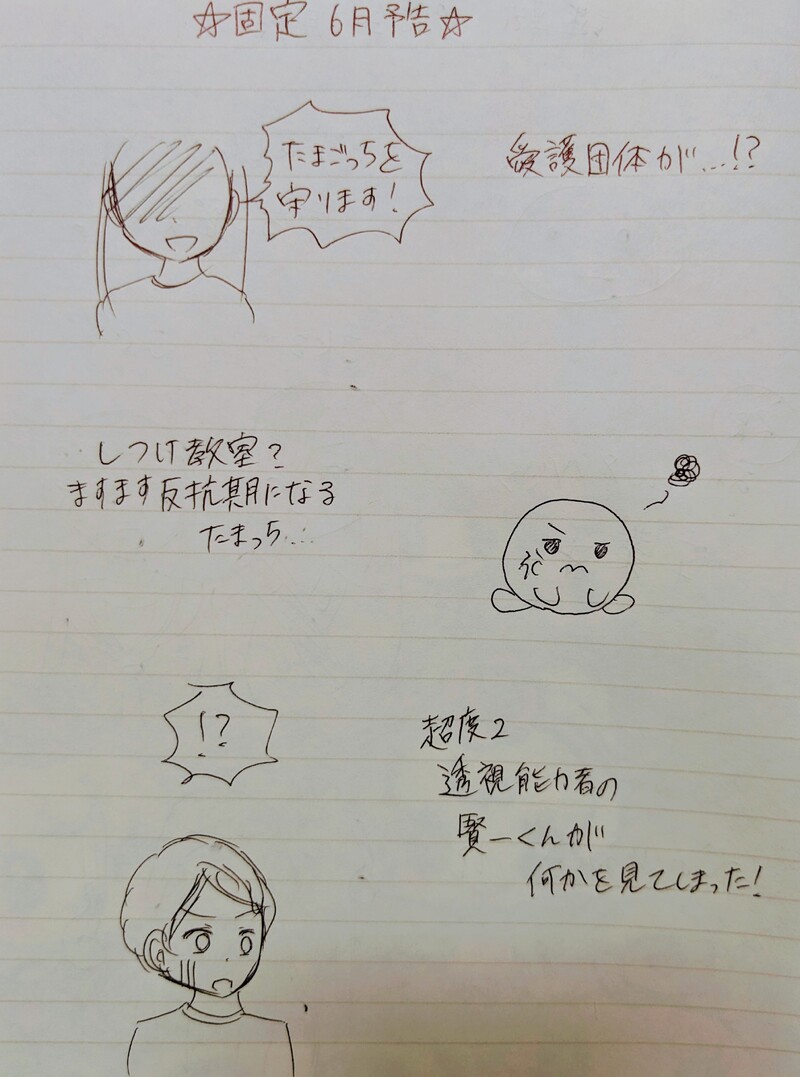 ☆固定 6月予告☆
たまごっちを
守ります!
愛護団体が...!?
しつけ教室?
ますます反抗期になる
たまっち...
!?
超度2
透視能力者の
賢一くんが
何かを見てしまった!